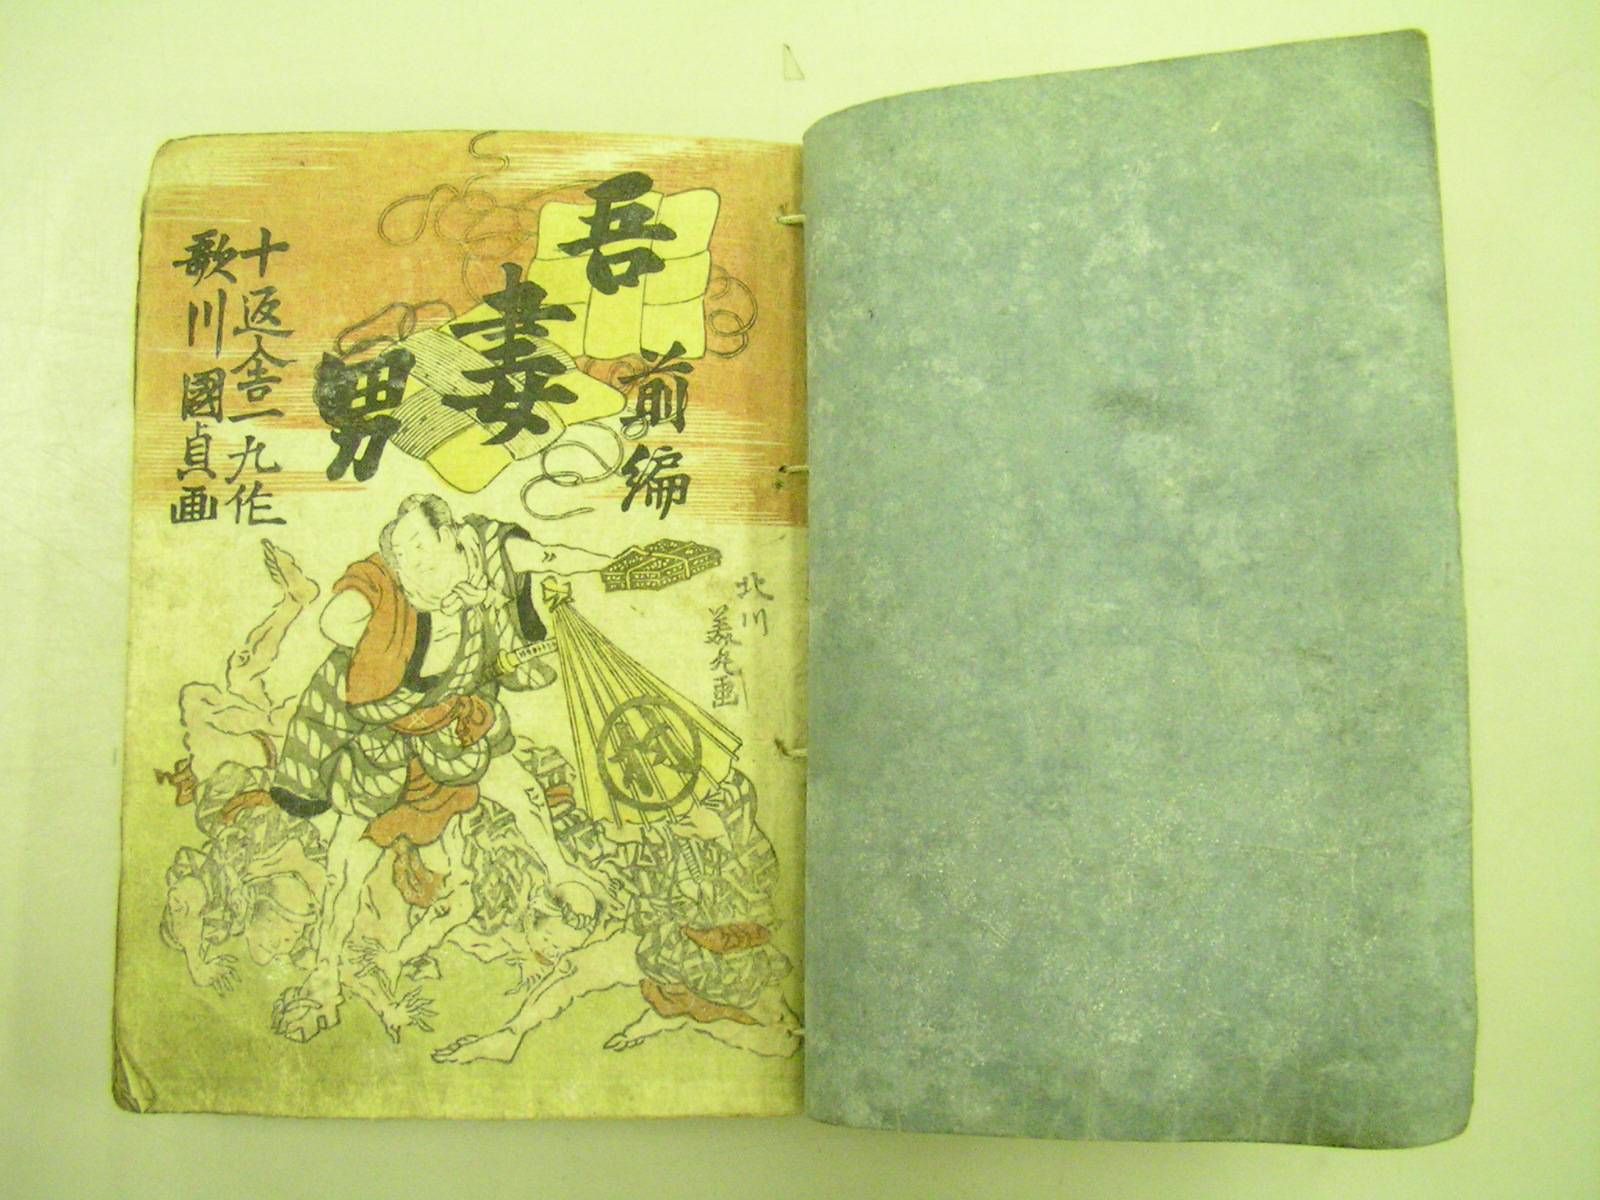 吾妻男
前編
十返舎一九作
歌川國貞画
北川
美丸画